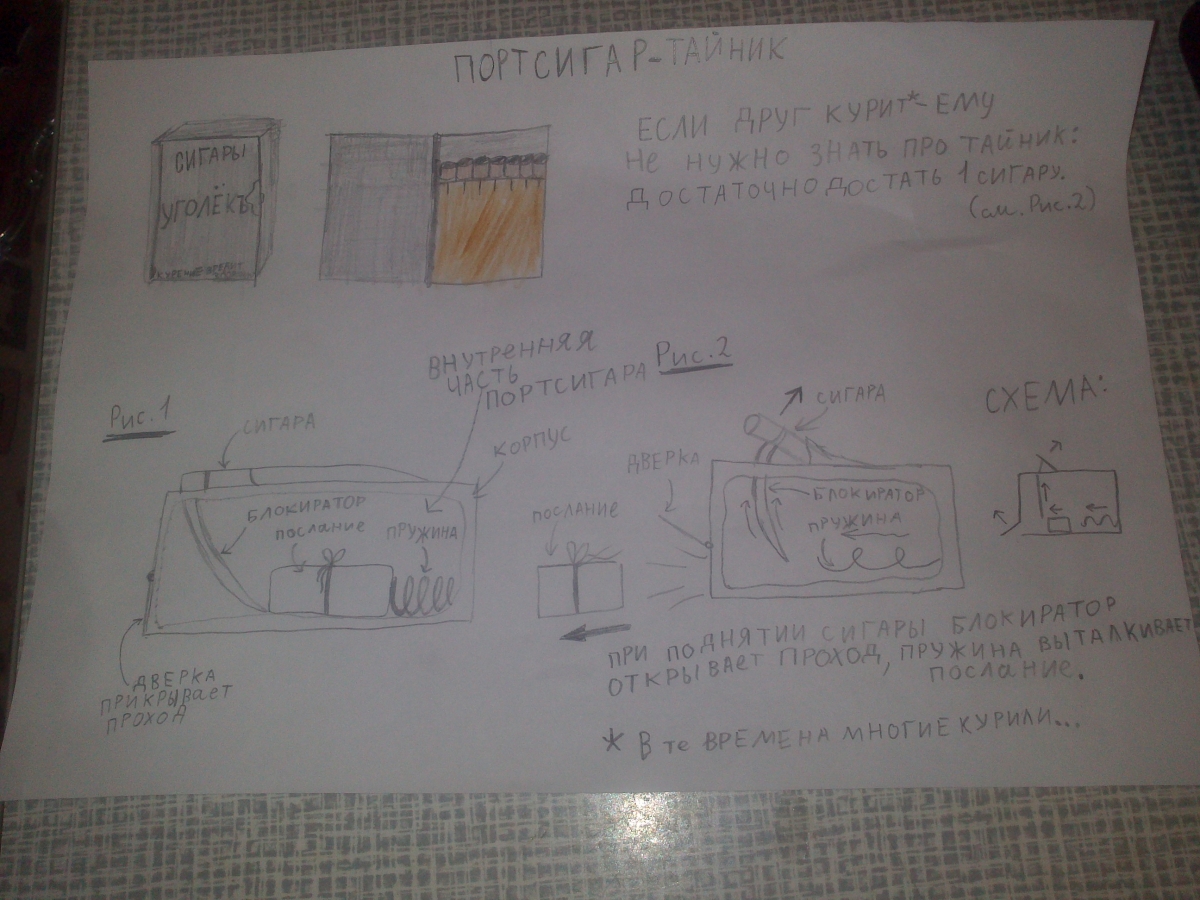 ПОРТСИГАР-ТАЙНИК
СИГАРЫ
УГОЛЁКЪ
КУРЕНИЕ ВРЕДИТ
ЕСЛИ ДРУГ КУРИТ*- ЕМУ
НЕ НУЖНО ЗНАТЬ ПРО ТАЙНИК:
ДОСТАТОЧНО ДОСТАТЬ 1 СИГАРУ.
(см. Рис.2)
Рис.1
СИГАРА
ВНУТРЕННЯЯ
ЧАСТЬ
ПОРТСИГАРА
КОРПУС
БЛОКИРАТОР
ПОСЛАНИЕ
ПРУЖИНА
ДВЕРКА
ПРИКРЫВАЕТ
ПРОХОД
Рис.2
СИГАРА
ДВЕРКА
ПОСЛАНИЕ
БЛОКИРАТОР
ПРУЖИНА
СХЕМА:
ПРИ ПОДНЯТИИ СИГАРЫ БЛОКИРАТОР
ОТКРЫВАЕТ ПРОХОД, ПРУЖИНА ВЫТАЛКИВАЕТ
ПОСЛАНИЕ.
* В те ВРЕМЕНА МНОГИЕ КУРИЛИ...